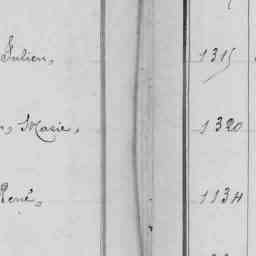 Julien, 1315
Marie, 1320
René, 1134